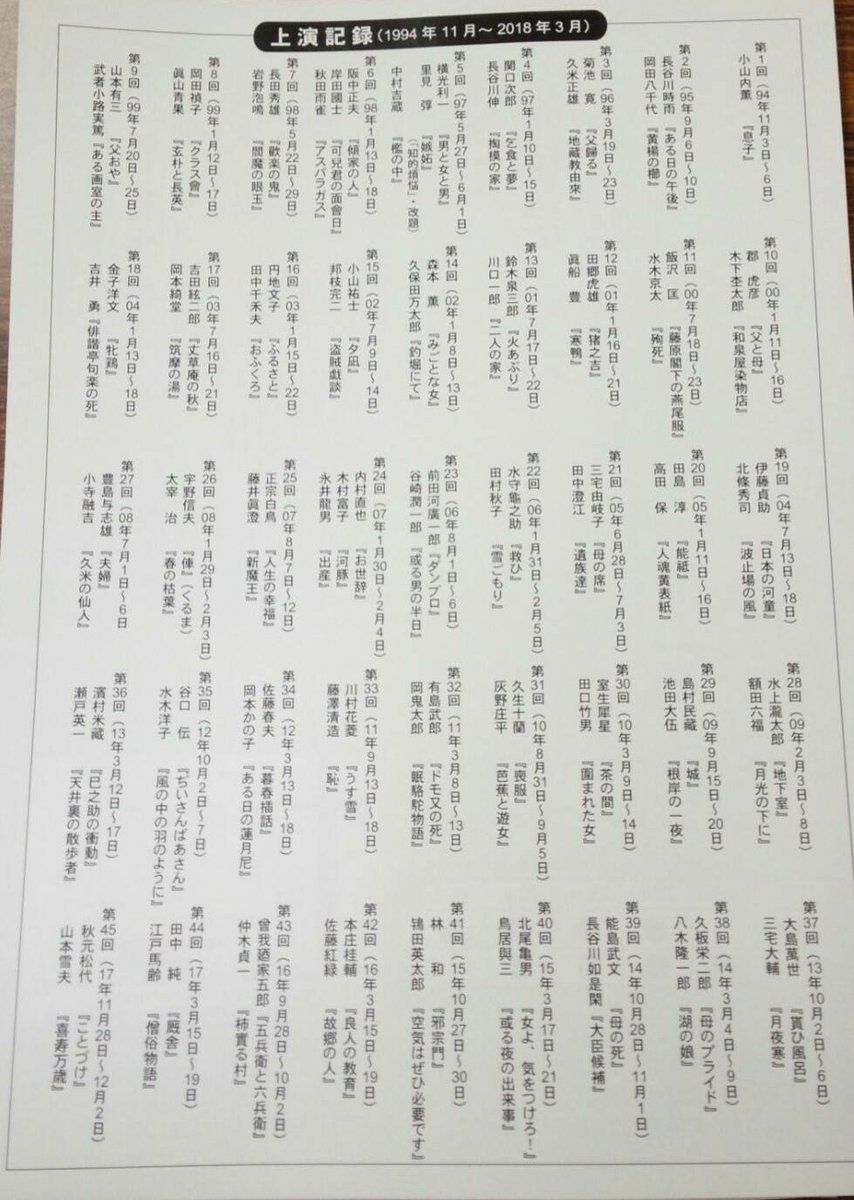 上演記録（1994年11月～2018年3月）
第1回（94年11月3日～6日）
小山内薫　『息子』
第2回（95年9月6日～10日）
長谷川時雨　『ある日の午後』
岡田八千代　『黄楊の櫛』
第3回（96年3月19日～23日）
菊池　寛　『父帰る』
久米正雄　『地蔵教由來』
第4回（97年1月10日～15日）
関口次郎　『乞食と夢』
長谷川伸　『掏摸の家』
第5回（97年5月27日～6月1日）
横光利一　『男と女と男』
里見　弴　『嫉妬』
（「知的煩悩」・改題）
中村吉蔵　『檻の中』
第6回（98年1月13日～18日）
阪中正夫　『傾家の人』
岸田國士　『可兒君の面會日』
秋田雨雀　『アスパラガス』
第7回（98年5月22日～29日）
長田秀雄　『歡楽の鬼』
岩野泡鳴　『閻魔の眼玉』
第8回（99年1月12日～17日）
岡田禎子　『クラス會』
眞山青果　『玄朴と長英』
第9回（99年7月20日～25日）
山本有三　『父おや』
武者小路実篤　『ある画室の主』
第10回（00年1月11日～16日）
郡　虎彦　『父と母』
木下杢太郎　『和泉屋染物店』
第11回（00年7月18日～23日）
飯沢　匡　『藤原閣下の燕尾服』
水木京太　『殉死』
第12回（01年1月16日～21日）
田郷虎雄　『猪之吉』
眞船　豊　『寒鴨』
第13回（01年7月17日～22日）
鈴木泉三郎　『火あぶり』
川口一郎　『二人の家』
第14回（02年1月8日～13日）
森本　薫　『みごとな女』
久保田万太郎　『釣堀にて』
第15回（02年7月9日～14日）
小山祐士　『夕凪』
邦枝完二　『盗賊戯談』
第16回（03年1月15日～22日）
円地文子　『ふるさと』
田中千禾夫　『おふくろ』
第17回（03年7月16日～21日）
吉田絃二郎　『丈草庵の秋』
岡本綺堂　『筑摩の湯』
第18回（04年1月13日～18日）
金子洋文　『牝鶏』
吉井　勇　『俳諧亭句楽の死』
第19回（04年7月13日～18日）
伊藤貞助　『日本の河童』
北條秀司　『波止場の風』
第20回（05年1月11日～16日）
田島　淳　『能祗』
高田　保　『人魂黄表紙』
第21回（05年6月28日～7月3日）
三宅由岐子　『母の席』
田中澄江　『遺族達』
第22回（06年1月31日～2月5日）
水守亀之助　『救ひ』
田村秋子　『雪ごもり』
第23回（06年8月1日～6日）
前田河廣一郎　『ダンブロ』
谷崎潤一郎　『或る男の半日』
第24回（07年1月30日～2月4日）
内村直也　『お世辞』
木村富子　『河豚』
永井龍男　『出産』
第25回（07年8月7日～12日）
正宗白鳥　『人生の幸福』
藤井眞澄　『新魔王』
第26回（08年1月29日～2月3日）
宇野信夫　『俥』（くるま）
太宰　治　『春の枯葉』
第27回（08年7月1日～6日
豊島与志雄　『夫婦』
小寺融吉　『久米の仙人』
第28回（09年2月3日～8日）
水上瀧太郎　『地下室』
額田六福　『月光の下に』
第29回（09年9月15日～20日）
島村民蔵　『城』
池田大伍　『根岸の一夜』
第30回（10年3月9日～14日）
室生犀星　『茶の間』
田口竹男　『圍まれた女』
第31回（10年8月31日～9月5日）
久生十蘭　『喪服』
灰野庄平　『芭蕉と遊女』
第32回（11年3月8日～13日）
有島武郎　『ドモ又の死』
岡鬼太郎　『眠駱駝物語』
第33回（11年9月13日～18日）
川村花菱　『うす雪』
藤澤清造　『恥』
第34回（12年3月13日～18日）
佐藤春夫　『暮春插話』
岡本かの子　『ある日の蓮月尼』
第35回（12年10月2日～7日）
谷口　伝　『ぢいさんばあさん』
水木洋子　『風の中の羽のように』
第36回（13年3月12日～17日）
濱村米蔵　『巳之助の衝動』
瀬戸英一　『天井裏の散歩者』
第37回（13年10月2日～6日）
大島萬世　『貰ひ風呂』
三宅大輔　『月夜寒』
第38回（14年3月4日～9日）
久板栄二郎　『母のプライド』
八木隆一郎　『湖の娘』
第39回（14年10月28日～11月1日）
能島武文　『母の死』
長谷川如是閑　『大臣候補』
第40回（15年3月17日～21日）
北尾亀男　『女よ、気をつけろ！』
鳥居與三　『或る夜の出来事』
第41回（15年10月27日～30日）
林　和　『邪宗門』
鴇田英太郎　『空気はぜひ必要です』
第42回（16年3月15日～19日）
本庄桂輔　『良人の教育』
佐藤紅緑　『故郷の人』
第43回（16年9月28日～10月2日）
曾我廼家五郎　『五兵衛と六兵衛』
仲木貞一　『柿實る村』
第44回（17年3月15日～19日）
田中　純　『厩舎』
江戸馬齢　『僧俗物語』
第45回（17年11月28日～12月2日）
秋元松代　『ことづけ』
山本雪夫　『喜寿万歳』